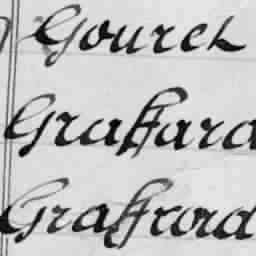 Gourel
Graffard
Graffrord